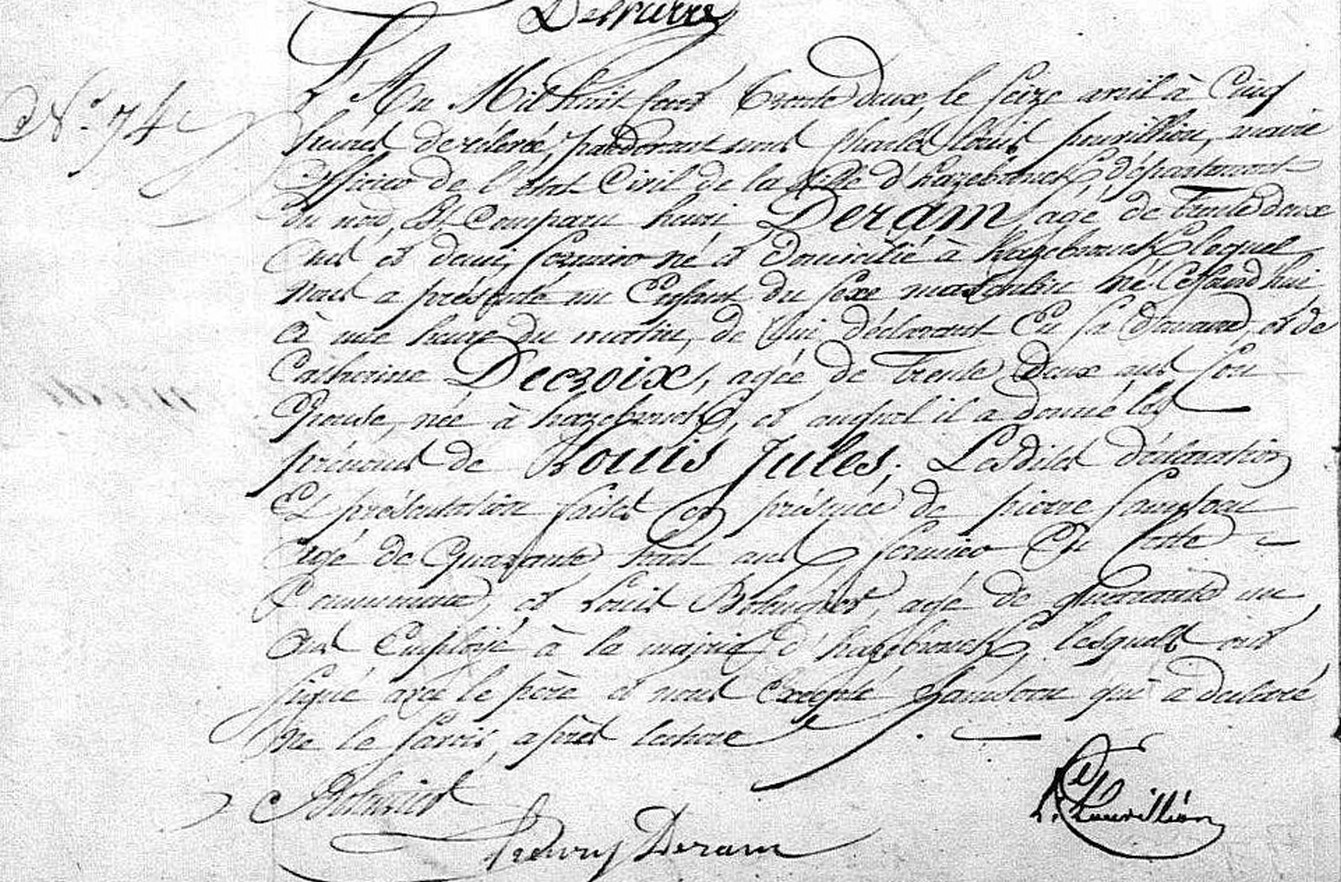 N.° 74
L'An Mil huit Cent Trente deux, le Seize avril à Cinq
heures de rélevée, pardevant nous Charles Louis, maire
Officier de l'état Civil de la Ville d'hazebrouck, département
du nord, Est Comparu henri Deram, agé de Trente deux
ans et demi, né et domicilié à hazebrouck, lequel
Nous a présenté un Enfant du sexe masculin né Cejourd'hui
à une heure du matin, de lui déclarant En sa demeure, et de
Catherine Decroix, agée de Trente Deux ans Son
Epouse, née à hazebrouck, et auquel il a donné les
prénoms de Louis Jules; Lesdites déclaration
Et présentation faites En présence de pierre
agé de Quarante huit ans, En Cette
Commune, et Louis, agé de quarante un
ans Employé à la mairie d'hazebrouck, lesquels ont
signé avec le père et nous Excepté qui a déclaré
Ne le savoir, après lecture
henry Deram